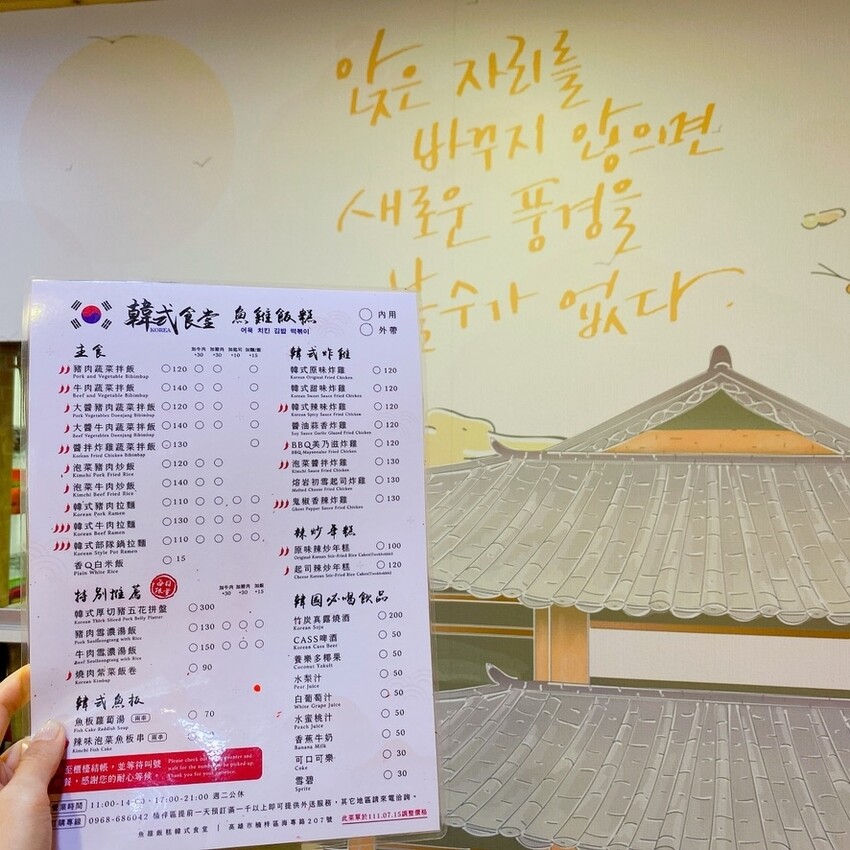 앉은 자리를
바꾸지 않으면
새로운 풍경을
볼수가 없다.
韓式食堂 魚雞飯糕
KOREA
어묵 치킨 김밥 떡볶이
內用
外帶
主食
加牛肉 +30 加豬肉 +30 加起司 +10 加麵/飯 +15
豬肉蔬菜拌飯 120
Pork and Vegetable Bibimbap
牛肉蔬菜拌飯 140
Beef and Vegetable Bibimbap
大醬豬肉蔬菜拌飯 120
Pork Vegetables Doenjang Bibimbap
大醬牛肉蔬菜拌飯 140
Beef Vegetables Doenjang Bibimbap
醬拌炸雞蔬菜拌飯 130
Korean Fried Chicken Bibimbap
泡菜豬肉炒飯 120
Kimchi Pork Fried Rice
泡菜牛肉炒飯 140
Kimchi Beef Fried Rice
韓式豬肉拉麵 110
Korean Pork Ramen
韓式牛肉拉麵 130
Korean Beef Ramen
韓式部隊鍋拉麵 110
Korean Style Pot Ramen
香Q白米飯 15
Plain White Rice
特別推薦
每日限量
加牛肉 +30 加豬肉 +30 加飯 +15
韓式厚切豬五花拼盤 300
Korean Thick Sliced Pork Belly Platter
豬肉雪濃湯飯 130
Pork Seolleongtang with Rice
牛肉雪濃湯飯 150
Beef Seolleongtang with Rice
燒肉紫菜飯卷 90
Korean Kimbap
韓式魚板
魚板蘿蔔湯 兩串 70
Fish Cake Raddish Soup
辣味泡菜魚板串 兩串
Kimchi Fish Cake
韓式炸雞
韓式原味炸雞 120
Korean Original Fried Chicken
韓式甜味炸雞 120
Korean Sweet Sauce Fried Chicken
韓式辣味炸雞 120
Korean Spicy Sauce Fried Chicken
醬油蒜香炸雞 120
Soy Sauce Garlic Glazed Fried Chicken
BBQ美乃滋炸雞 120
BBQ Mayonnaise Fried Chicken
泡菜醬拌炸雞 130
Kimchi Sauce Fried Chicken
熔岩初雪起司炸雞 130
Melted Cheese Fried Chicken
鬼椒香辣炸雞 130
Ghost Pepper Sauce Fried Chicken
辣炒年糕
原味辣炒年糕 100
Original Korean Stir-Fried Rice Cakes(Tteokbokki)
起司辣炒年糕 120
Cheese Korean Stir-Fried Rice Cakes(Tteokbokki)
韓國必喝飲品
竹炭真露燒酒 200
Korean Soju
CASS啤酒 50
Korean Cass Beer
養樂多椰果 50
Coconut Yakult
水梨汁 50
Pear Juice
白葡萄汁 50
White Grape Juice
水蜜桃汁 50
Peach Juice
香蕉牛奶 50
Banana Milk
可口可樂 30
Coke
雪碧 30
Sprite
至櫃檯結帳，並等待叫號
餐，感謝您的耐心等候。
Thank you for your patience.
業時間 11:00-14:00、17:00-21:00 週二公休
購專線 0968-686042 楠梓區提前一天預訂滿一千以上即可提供外送服務，其它地區請來電洽詢。
魚雞飯糕韓式食堂 | 高雄市楠梓區海專路207號 此菜單於111.07.15調整價格